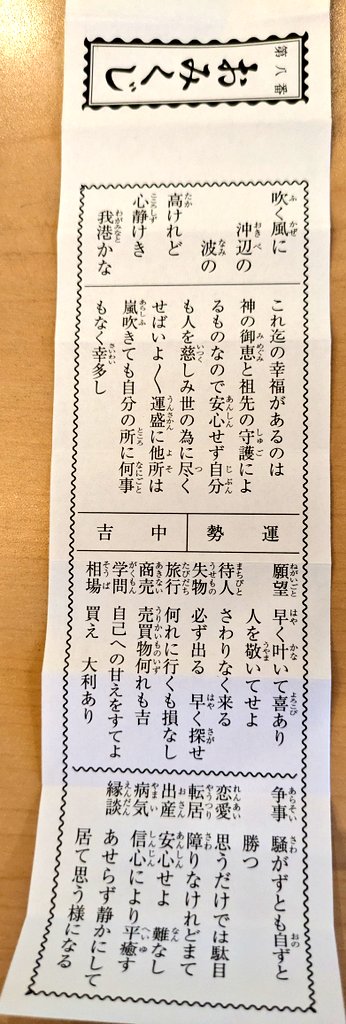 第八番
おみくじ
吹く風に
沖辺の
波の
高けれど
心静けき
我港かな
これ迄の幸福があるのは
神の御恵と祖先の守護によ
るものなので安心せず自分
も人を慈しみ世の為に尽く
せばいよ〱運盛に他所は
嵐吹きても自分の所に何事
もなく幸多し
運勢
中吉
願望 早く叶いて喜あり
人を敬いてせよ
待人 さわりなく来る
失物 必ず出る 早く探せ
旅行 何れに行くも損なし
商売 売買物何れも吉
学問 自己への甘えをすてよ
相場 買え 大利あり
争事 騒がずとも自ずと
勝つ
恋愛 思うだけでは駄目
転居 障りなけれどまて
出産 安心せよ 難なし
病気 信心により平癒す
縁談 あせらず静かにして
居て思う様になる